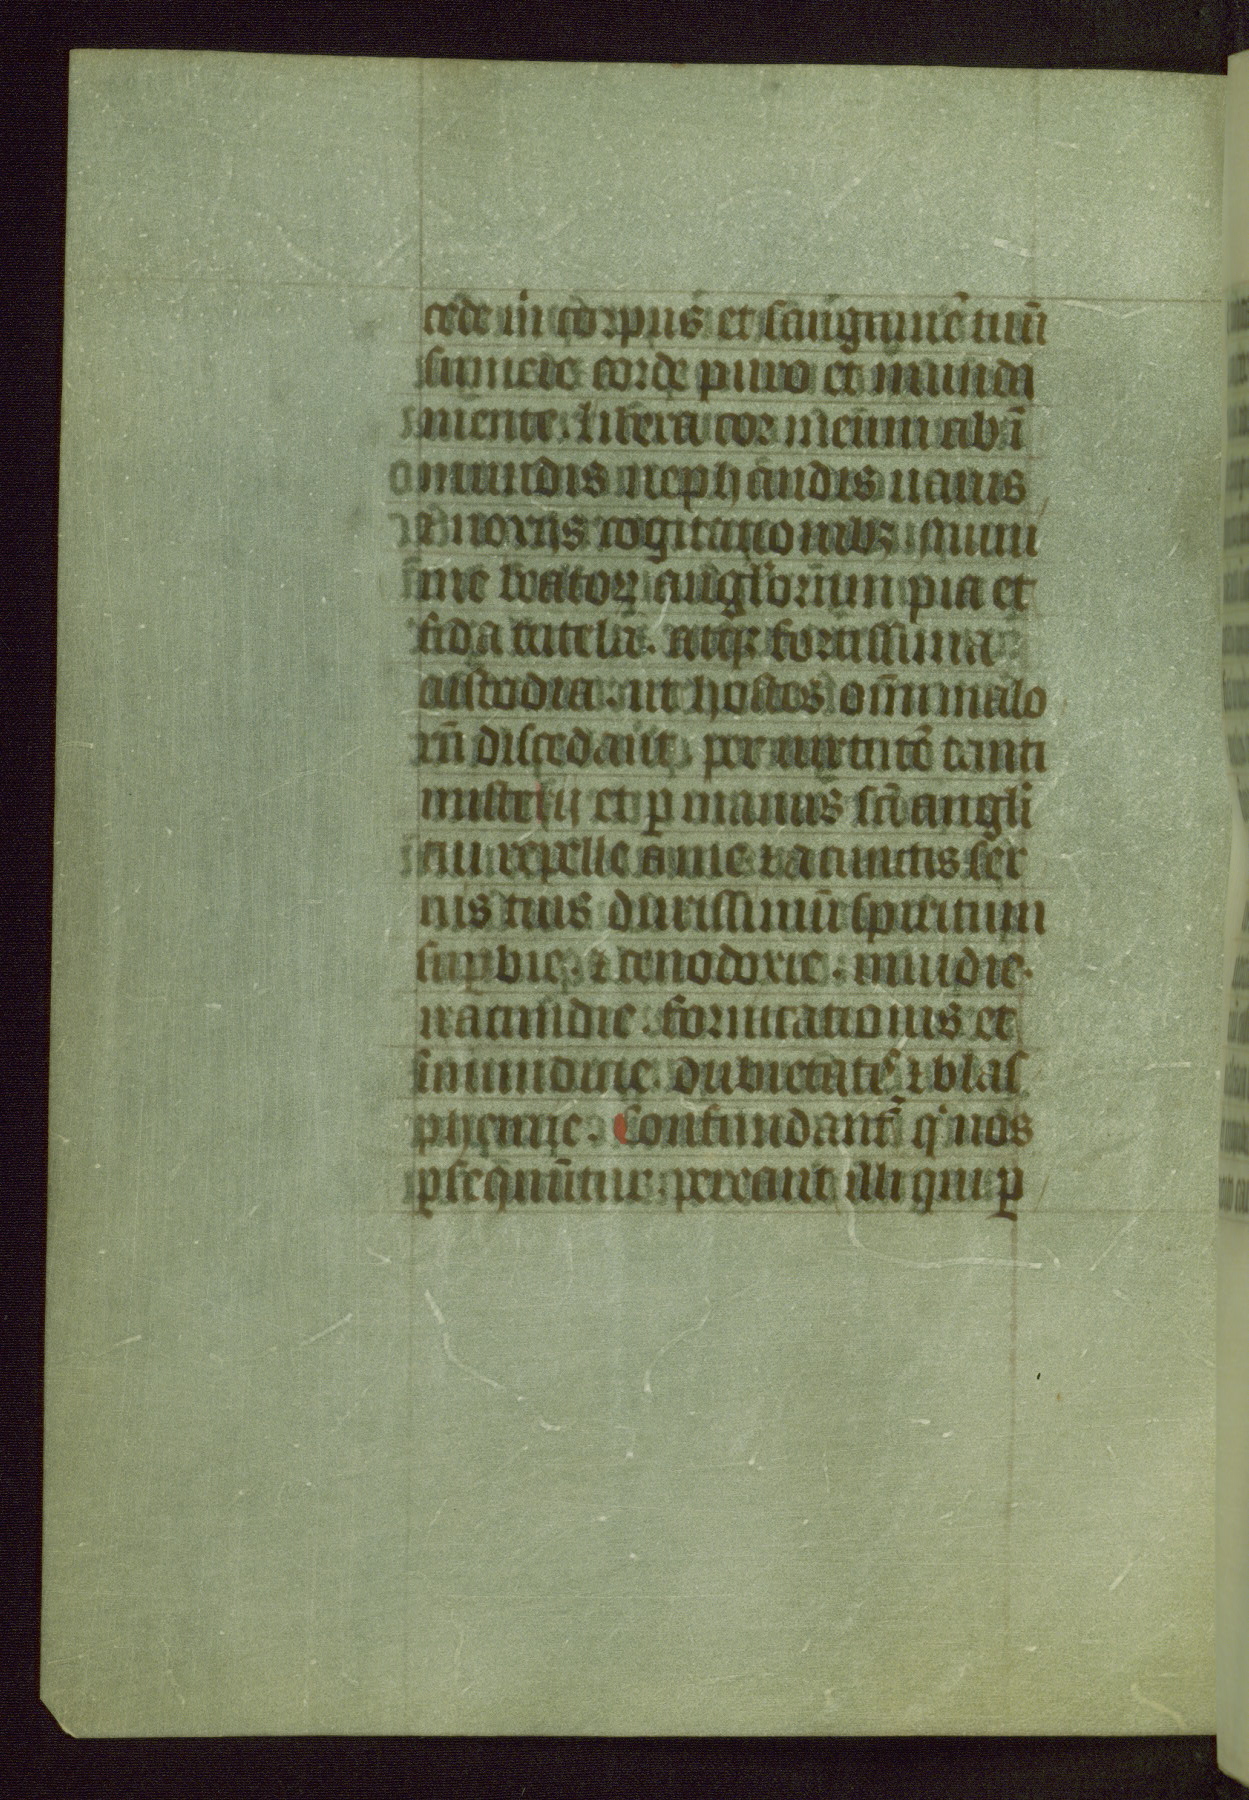 cede m̄ corpus et sanguinē tuū
sumere corde puro et munda
mente. libera cor meum ab ī
mundis nephandis uanis
⁊ noxiis cogitationibꝫ. muni
me beatoꝝ anglorum pia et
fida tutela. atqꝫ fortissima
custodia. ut hostes om̄i malo
rū discedant. per uirtutē tanti
misterij et ꝑ manus sc̄i angli
tui repelle a me ⁊ a cunctis ser
uis tuis durissimū spiritum
supbie. ⁊ cenodoxie. inuidie.
iracundie. fornicationis et
inmundicie. dubietatis ⁊ blas
phemie. Confundant᷑ q' nos
ꝑsequūtur. pereant illi qui ꝑ